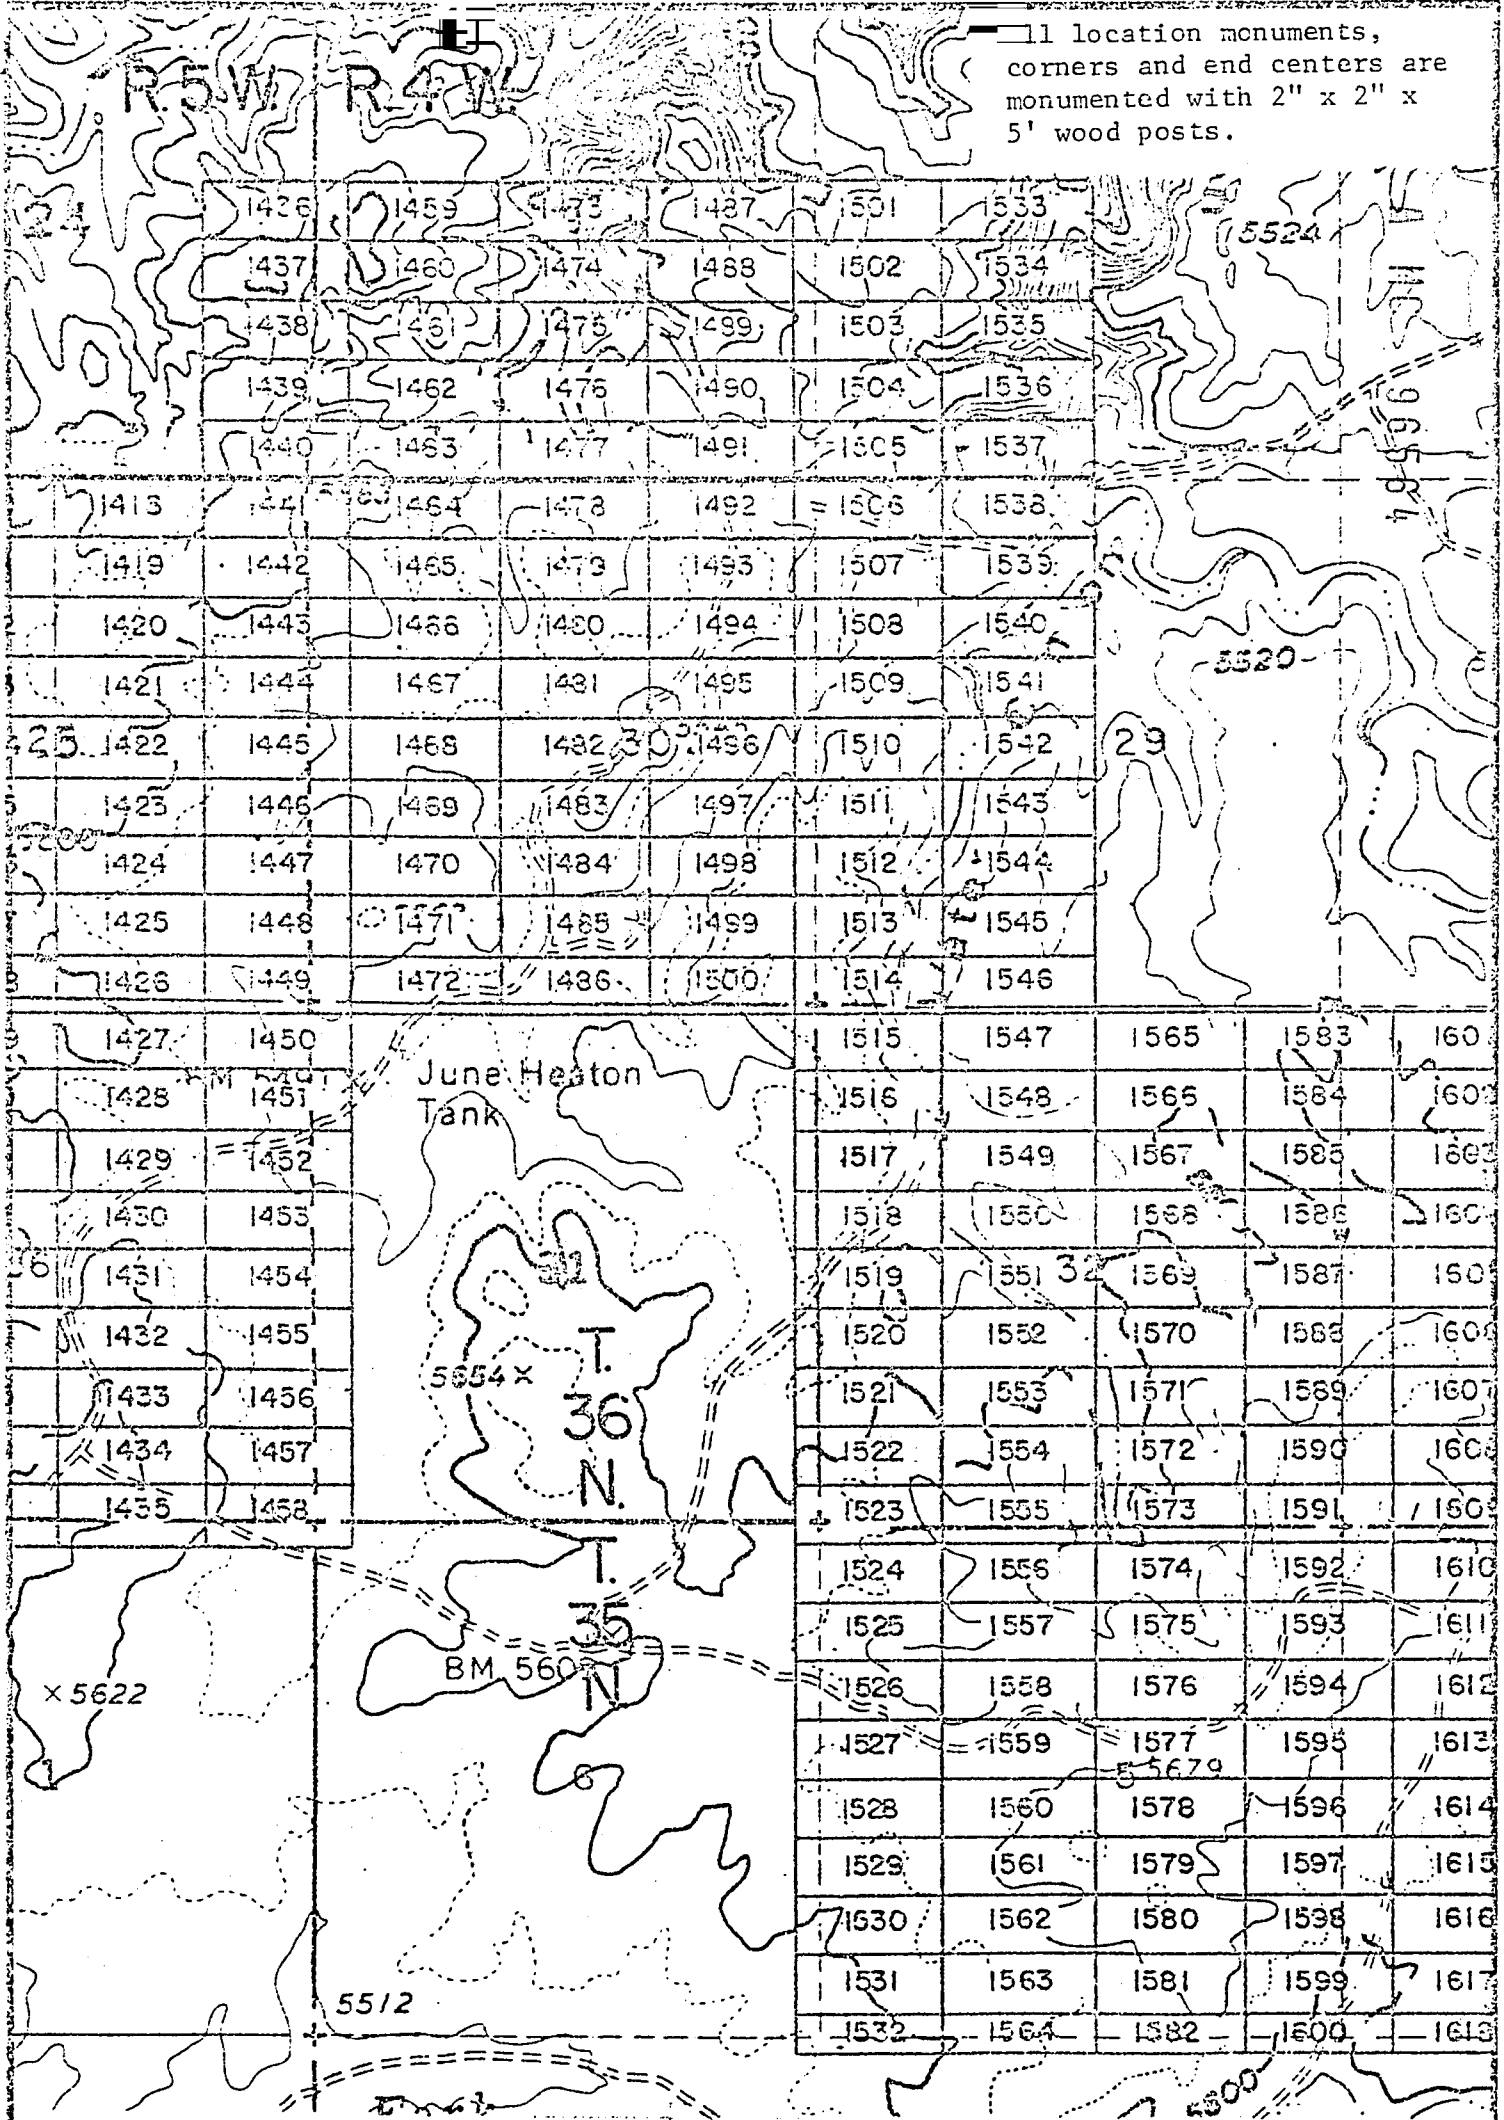 11 location monuments,
corners and end centers are
monumented with 2" x 2" x
5' wood posts.
R.5W. R.4W.
24
1436 1459 1473 1487 1501 1533
5524
1437 1460 1474 1488 1502 1534
1438 1461 1475 1499 1503 1535
1439 1462 1476 1490 1504 1536
1440 1463 1477 1491 1505 1537
1413 1441 1464 1478 1492 1506 1538
1419 1442 1465 1479 1493 1507 1539
1420 1443 1466 1480 1494 1508 1540
5520
1421 1444 1467 1481 1495 1509 1541
425 1422 1445 1468 1482 30 1496 1510 1542 29
1423 1446 1469 1483 1497 1511 1543
1424 1447 1470 1484 1498 1512 1544
1425 1448 1471 1485 1499 1513 1545
1426 1449 1472 1486 1500 1514 1546
1427 1450 1515 1547 1565 1583 160
June Heaton
Tank
1428 1451 1516 1548 1566 1584 160
1429 1452 1517 1549 1567 1585 1603
1430 1453 1518 1550 1568 1586 160
31
1431 1454 1519 1551 32 1569 1587 160
1432 1455 1520 1552 1570 1588 160
T.
36
N.
5654
1433 1456 1521 1553 1571 1589 1607
1434 1457 1522 1554 1572 1590 160
1435 1458 1523 1555 1573 1591 160
T.
35
N
1524 1556 1574 1592 1610
1525 1557 1575 1593 1611
BM 560
×5622
1526 1558 1576 1594 1612
1527 1559 1577 1595 1613
6
5 5679
1528 1560 1578 1596 1614
1529 1561 1579 1597 1615
1530 1562 1580 1598 1616
1531 1563 1581 1599 1617
5512
1532 1564 1582 1600 161
5600